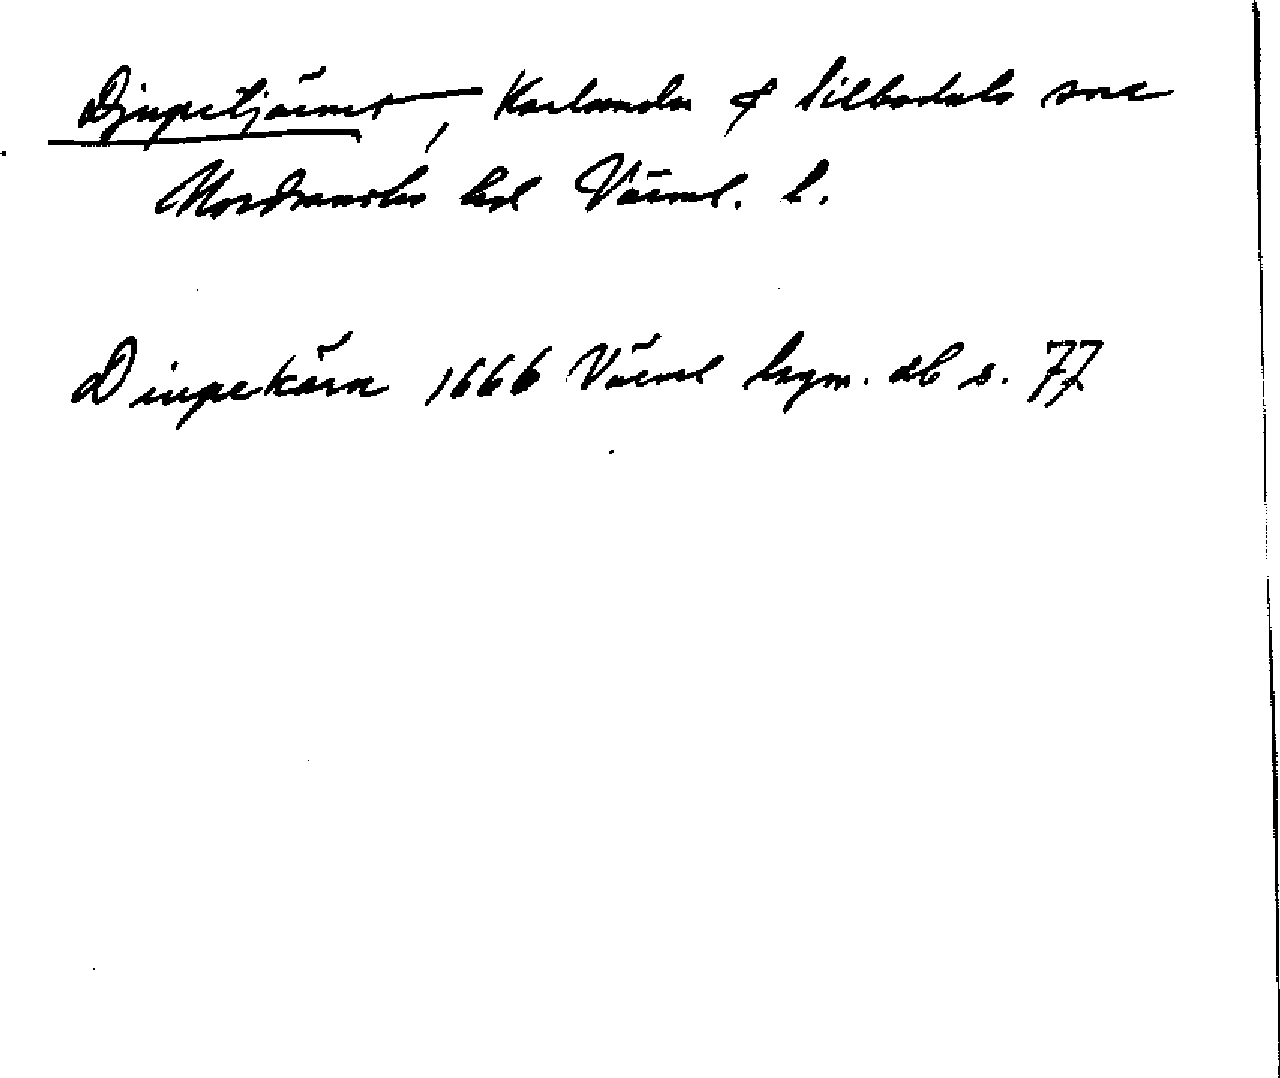 Djupetjärnet, Karlanda & Silbodals snr
Nordmarks hd Värml. l.
Diupekärn 1666 Värml hrgm. db s. 77